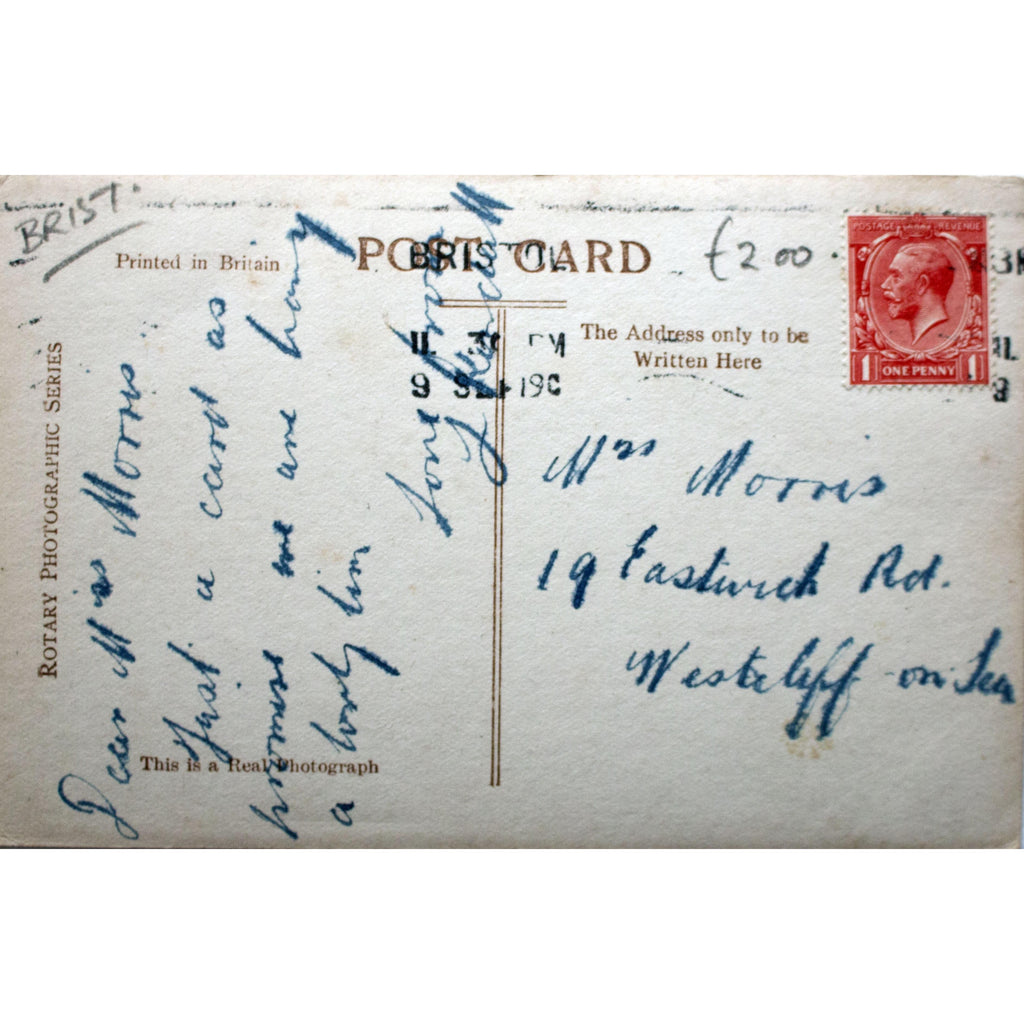 BRIST.
Printed in Britain
POST CARD
£2.00
BRISTOL
The Address only to be
Written Here
POSTAGE REVENUE
1 ONE PENNY 1
ROTARY PHOTOGRAPHIC SERIES
This is a Real Photograph
Dear Miss Morris
Just a card as
promised we are having
a lovly tim
love from
Mrs Morris
19 Eastwick Rd.
Westclyff-on-Sea